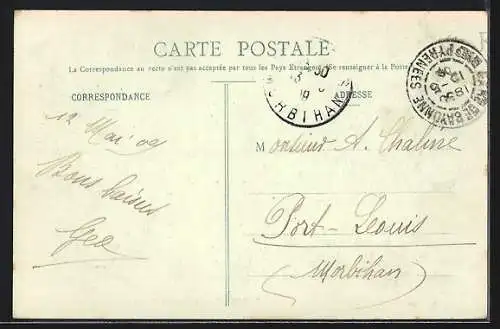 CARTE POSTALE
La Correspondance au recto n'est pas acceptée par tous les Pays Etrangers (Se renseigner à la Poste)
CORRESPONDANCE
ADRESSE
12 Mai 09
Bons baisers
Geo
Monsieur A. Chaline
Port-Louis
(Morbihan)
MORBIHAN
BAYONNE
PYRENEES